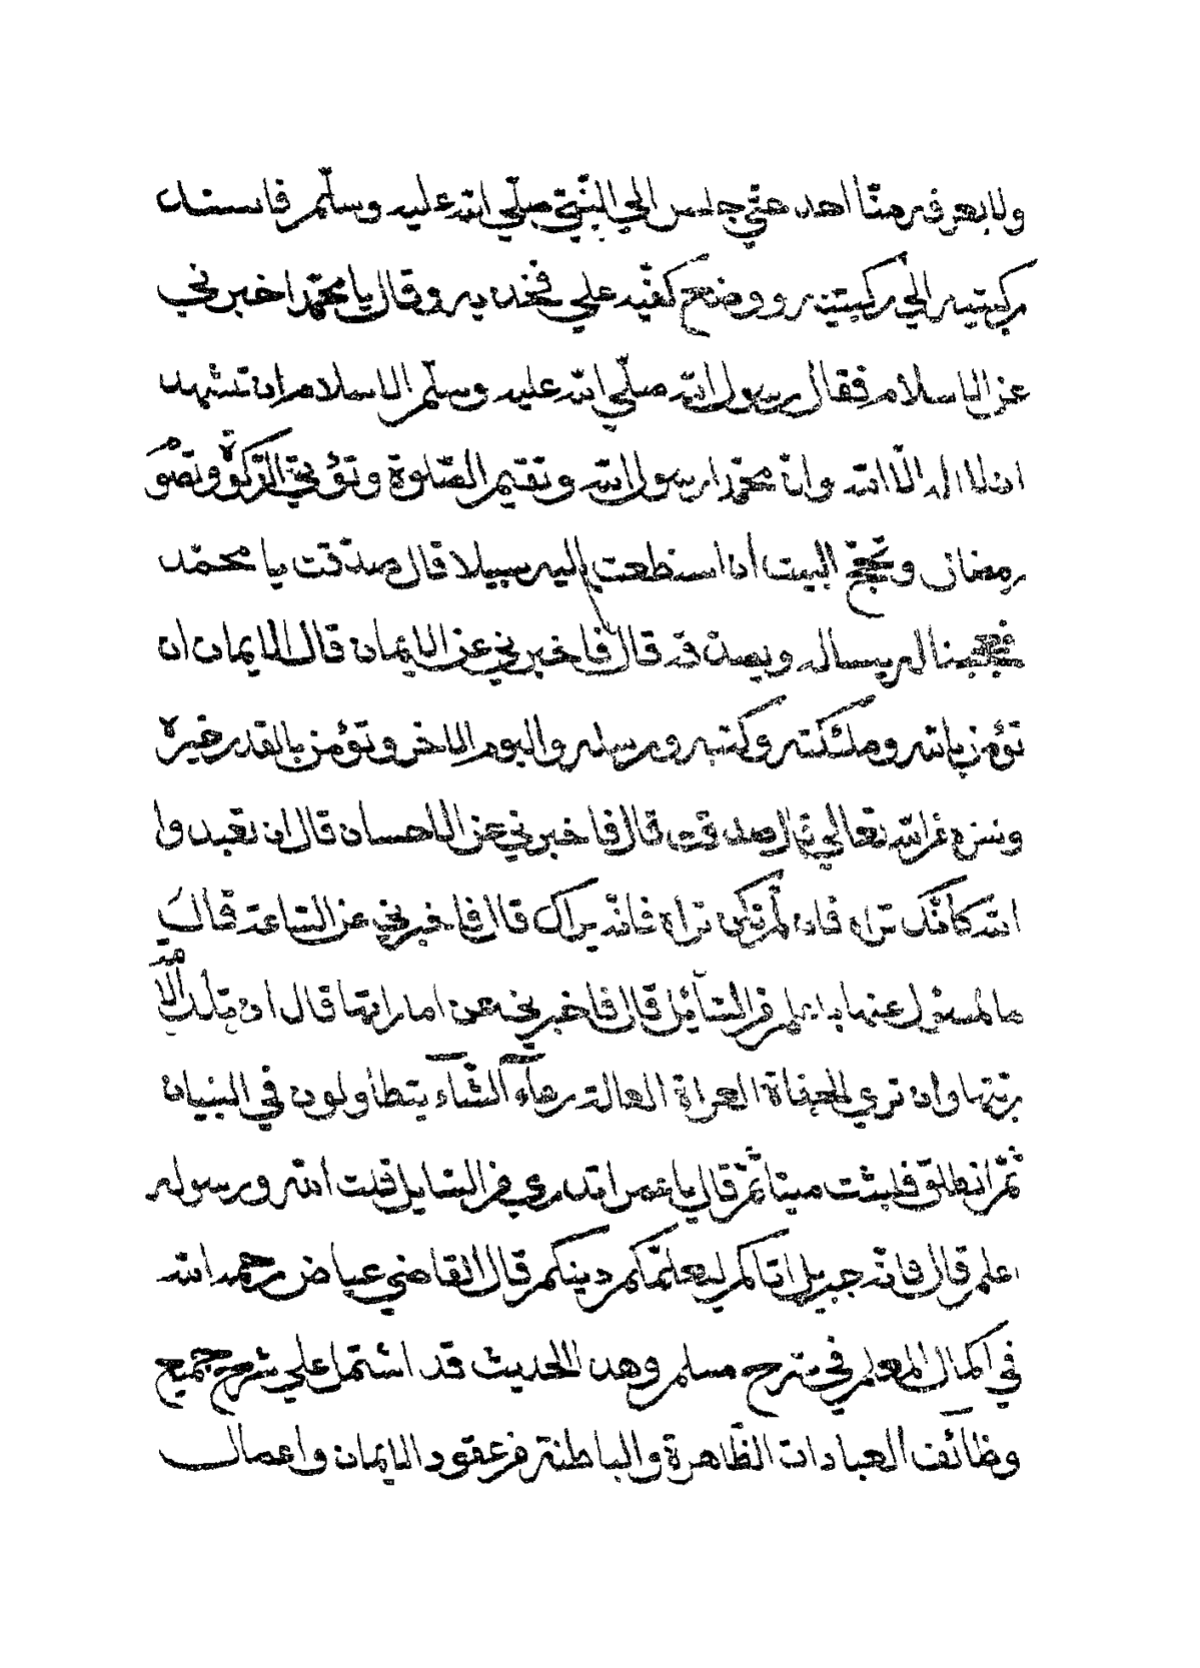 ولا يعرفه منّا احد حتّي جلس الي النّبيّ صلّي الله عليه وسلّم فاسند
ركبتيه الي ركبتيه ووضع كفّيه علي فخذيه وقال يا محمّد اخبرني
عن الاسلام فقال رسول الله صلّي الله عليه وسلّم الاسلام ان تشهد
ان لا اله الّا الله وانّ محمّدا رسول الله وتقيم الصّلوة وتؤتي الزّكوة وتصوم
رمضان وتحجّ البيت ان استطعت اليه سبيلا قال صدقت يا محمّد
فعجبنا له يساله ويصدّقه قال فاخبرني عن الايمان قال الايمان ان
تؤمن بالله وملئكته وكتبه ورسله واليوم الاخر وتؤمن بالقدر خيره
وشره من الله تعالي قال صدقت قال فاخبرني عن الاحسان قال ان تعبدوا
الله كأنّك تراه فان لم تكن تراه فانّه يراك قال فاخبرني عن السّاعة قال
ما المسؤل عنها باعلم من السّآئل قال فاخبرني عن اماراتها قال ان تلد الامة
ربّتها وان تري الحفاة العراة العالة رعآء الشّآء يتطاولون في البنيان
ثمّ انطلق فلبثت مليّا ثمّ قال يا عمر اتدري من السّايل قلت الله ورسوله
اعلم قال فانّه جبريل اتاكم ليعلّمكم دينكم قال القاضي عياض رحمه الله
في اكمال المعلم في شرح مسلم وهذا الحديث قد اشتمل علي شرح جميع
وظآئف العبادات الظّاهرة والباطنة من عقود الايمان واعمال